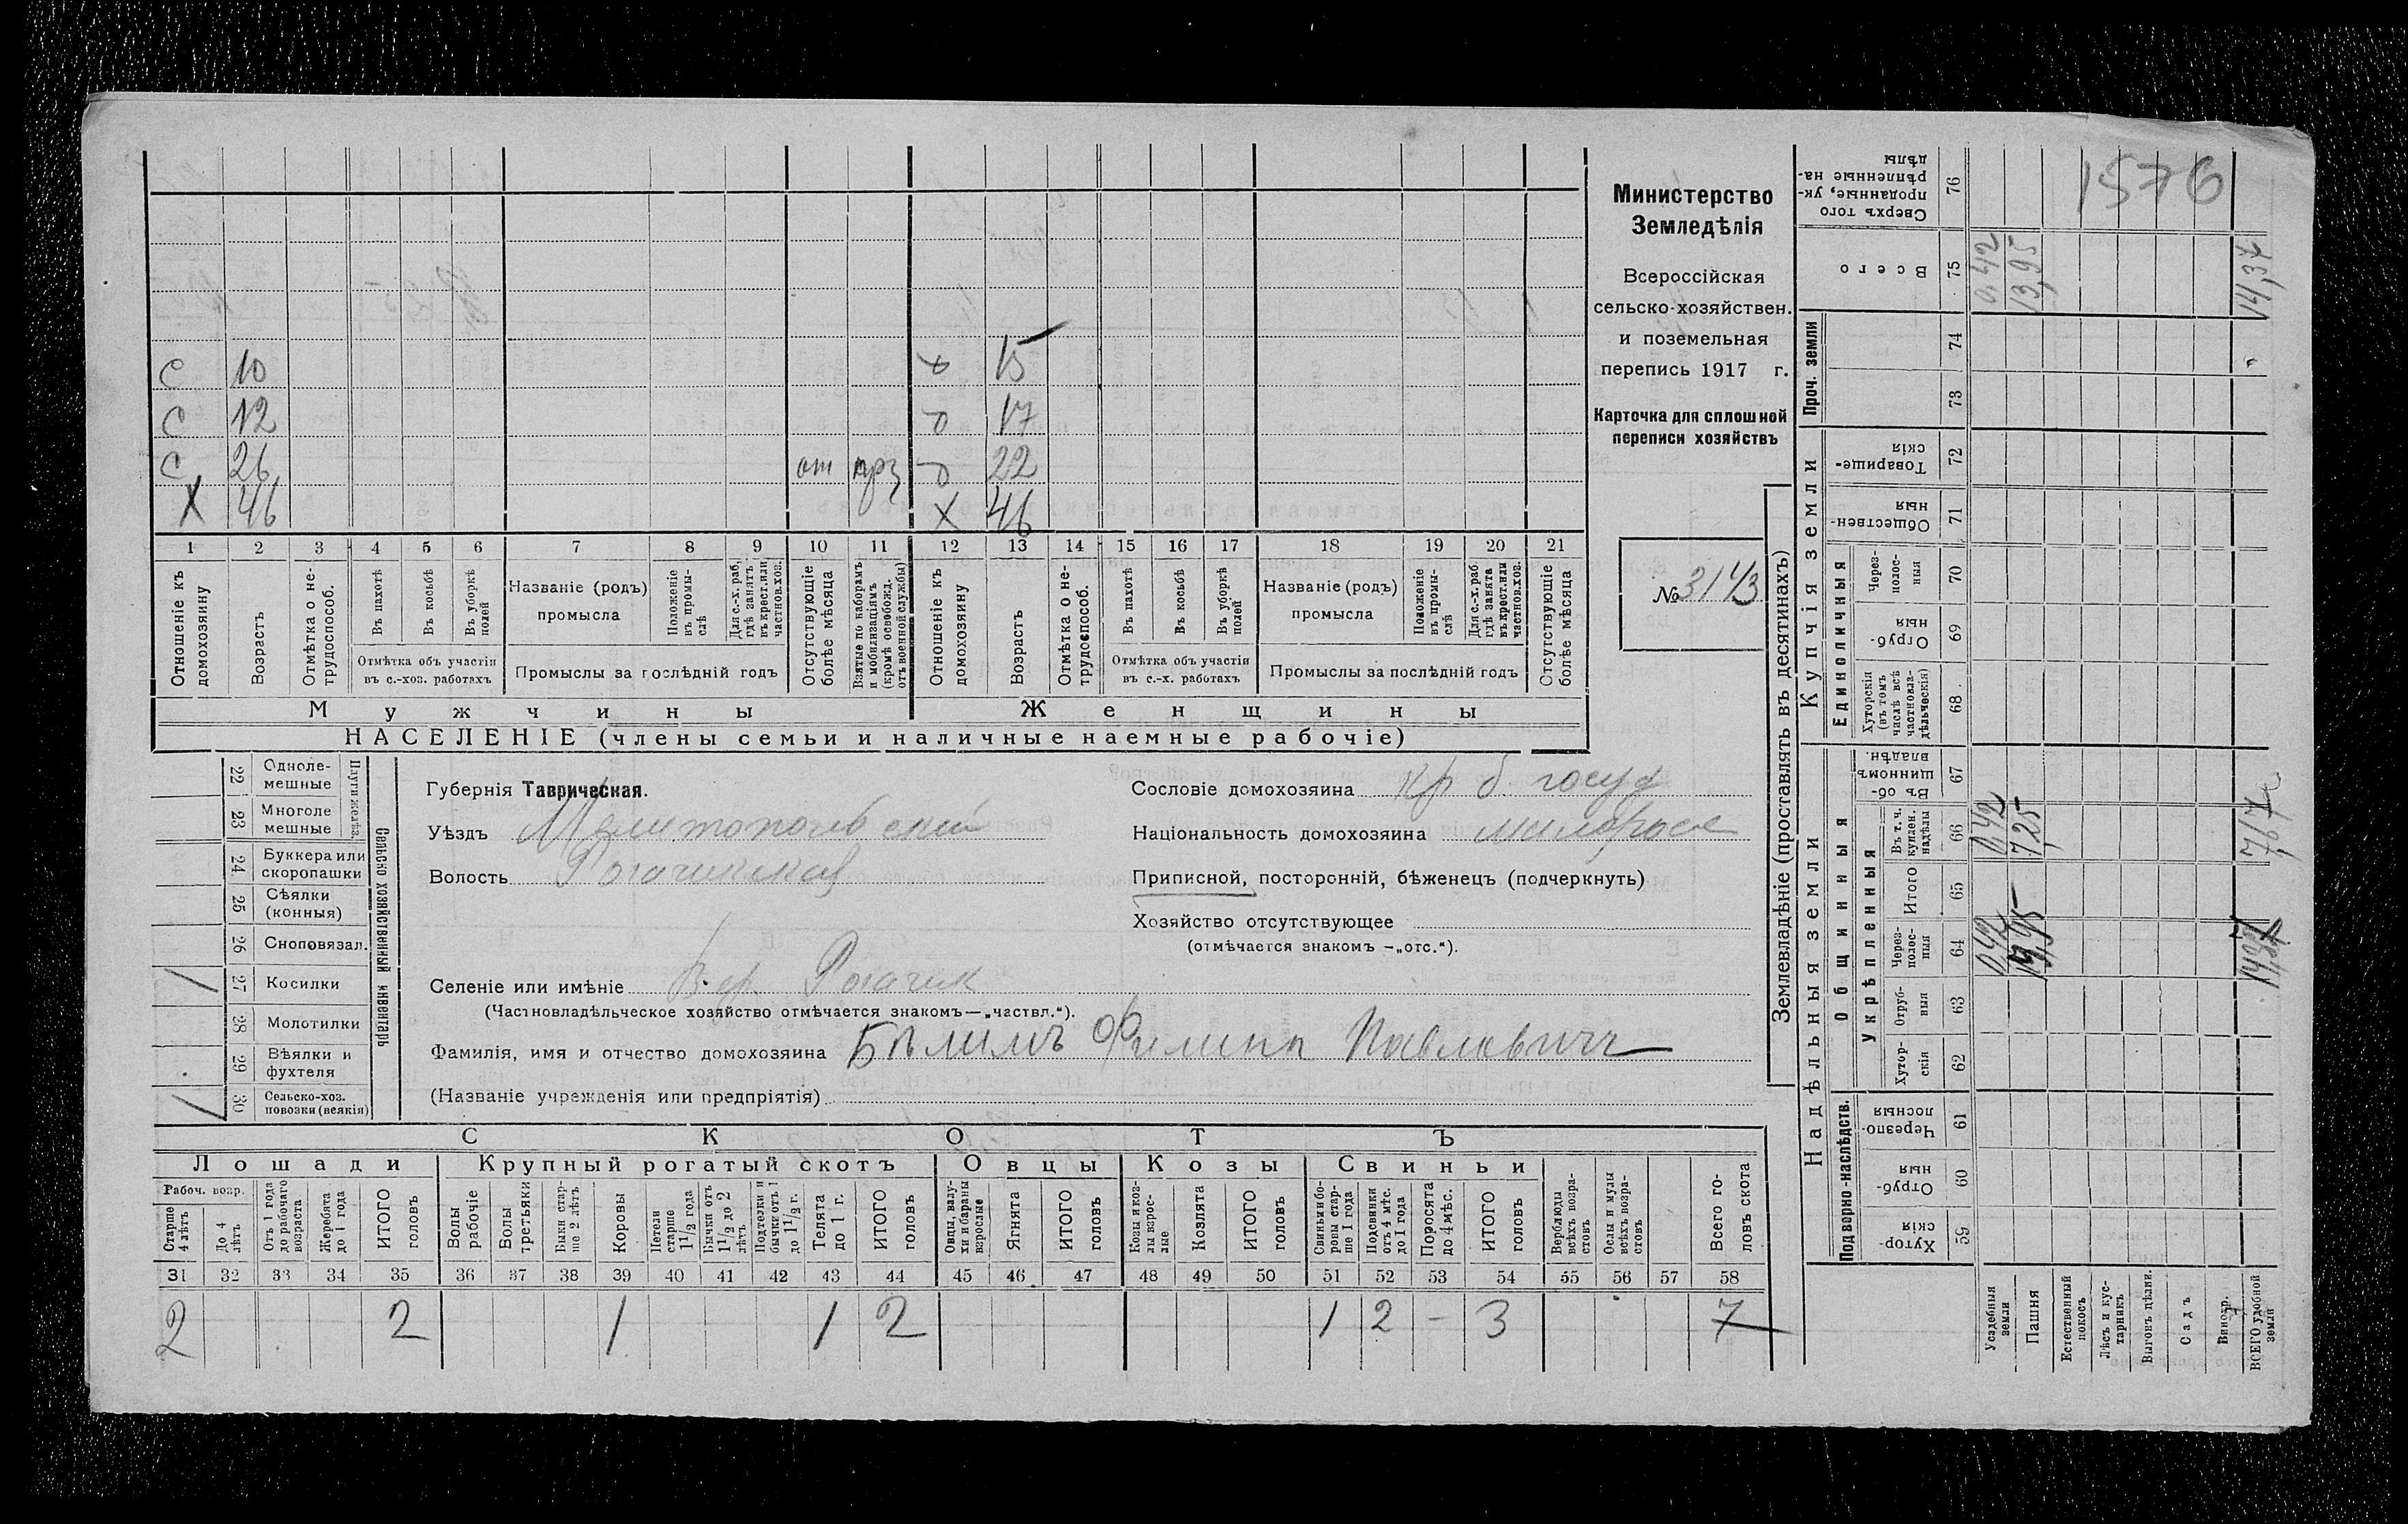 Министерство
Земледѣлія
Всероссійская
сельско-хозяйствен.
и поземельная
перепись 1917 г.
Карточка для сплошной
переписи хозяйствъ
№ 3143
1576
С 10
С 12
С 26 от
Х 46
15
17
22
Х 46
1 2 3 4 5 6 7 8 9 10 11 12 13 14 15 16 17 18 19 20 21
Отношеніе къ домохозяину
Возрастъ
Отмѣтка о нетрудоспособ.
Въ пахотѣ
Въ косьбѣ
Въ уборкѣ полей
Отмѣтка объ участіи
въ с.-хоз. работахъ
Названіе (родъ)
промысла
Положеніе въ промыслѣ
Для с.-х. раб. гдѣ занятъ въ крест. или частнов. хоз.
Промыслы за послѣдній годъ
Отсутствующіе болѣе мѣсяца
Взятые по наборамъ и мобилизаціямъ (кромѣ освобожд. отъ военной службы)
Отношеніе къ домохозяину
Возрастъ
Отмѣтка о нетрудоспособ.
Въ пахотѣ
Въ косьбѣ
Въ уборкѣ полей
Отмѣтка объ участіи
въ с.-х. работахъ
Названіе (родъ)
промысла
Положеніе въ промыслѣ
Для с.-х. раб. гдѣ занята въ крест. или частнов. хоз.
Промыслы за послѣдній годъ
Отсутствующіе болѣе мѣсяца
Мужчины Женщины
НАСЕЛЕНІЕ (члены семьи и наличные наемные рабочіе)
Сельско хозяйственный инвентарь
Плуги желѣз.
22 Однолемешные
23 Многолемешные
24 Буккера или скоропашки
25 Сѣялки (конныя)
26 Сноповязал.
27 Косилки 1
28 Молотилки
29 Вѣялки и фухтеля
30 Сельско-хоз. повозки (всякія) 1
Губернія Таврическая.
Уѣздъ Мелитопольскій
Волость Рогачикская
Сословіе домохозяина кр б. госуд
Національность домохозяина малоросс
Приписной, посторонній, бѣженецъ (подчеркнуть)
Хозяйство отсутствующее
(отмѣчается знакомъ —„отс.“).
Селеніе или имѣніе Вер. Рогачик
(Частновладѣльческое хозяйство отмѣчается знакомъ—„частвл.“).
Фамилія, имя и отчество домохозяина Бѣлимъ Филипп Павловичъ
(Названіе учрежденія или предпріятія)
СКОТЪ
Лошади Крупный рогатый скотъ Овцы Козы Свиньи
Рабоч. возр.
Старше 4 лѣтъ
До 4 лѣтъ
Отъ 1 года до рабочаго возраста
Жеребята до 1 года
ИТОГО головъ
Волы рабочіе
Волы третьяки
Быки старше 2 лѣтъ
Коровы
Нетели старше 1½ года
Бычки отъ 1½ до 2 лѣтъ
Подтелки и бычки отъ 1 до 1½ г.
Телята до 1 г.
ИТОГО головъ
Овцы, валухи и бараны взрослые
Ягнята
ИТОГО головъ
Козы и козлы взрослые
Козлята
ИТОГО головъ
Свиньи и боровы старше 1 года
Подсвинки отъ 4 мѣс. до 1 года
Поросята до 4 мѣс.
ИТОГО головъ
Верблюды всѣхъ возрастовъ
Ослы и мулы всѣхъ возрастовъ
Всего головъ скота
31 32 33 34 35 36 37 38 39 40 41 42 43 44 45 46 47 48 49 50 51 52 53 54 55 56 57 58
2 2 1 1 2 1 2 — 3 7
Землевладѣніе (проставлять въ десятинахъ)
Надѣльныя земли Купчія земли Проч. земли
Подворно-наслѣдств. Общинныя Единоличныя
Укрѣпленныя
59 Хуторскія
60 Отрубныя
61 Черезполосныя
62 Хуторскія
63 Отрубныя
64 Черезполосныя
65 Итого
66 Въ т. ч. куплен. надѣлы
67 Въ общинномъ владѣн.
68 Хуторскія (въ томъ числѣ всѣ частновладѣльческія)
69 Отрубныя
70 Черезполосныя
71 Общественныя
72 Товарищескія
73
74
75 Всего
76 Сверхъ того проданные, укрѣпленные надѣлы
Усадебныя земли 0,42 0,42 0,42
Пашня 7,25 13,95
Естественный покосъ
Лѣсъ и кустарникъ
Выгонъ цѣлин.
Садъ
Виногр.
ВСЕГО удобной земли 7,67 14,37